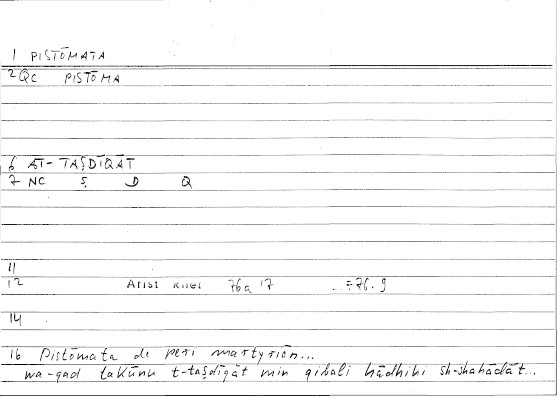 1 PISTŌMATA
2 QC PISTŌMA
6 AT-TAṢDĪQĀT
7 NC Ṣ D Q
11
12 Arist Rhet 76a 17 ..=76.9
14
16 Pistōmata de peri martyriōn...
wa-qad takūnu t-taṣdīqāt min qibali hādhihi sh-shahādāt...